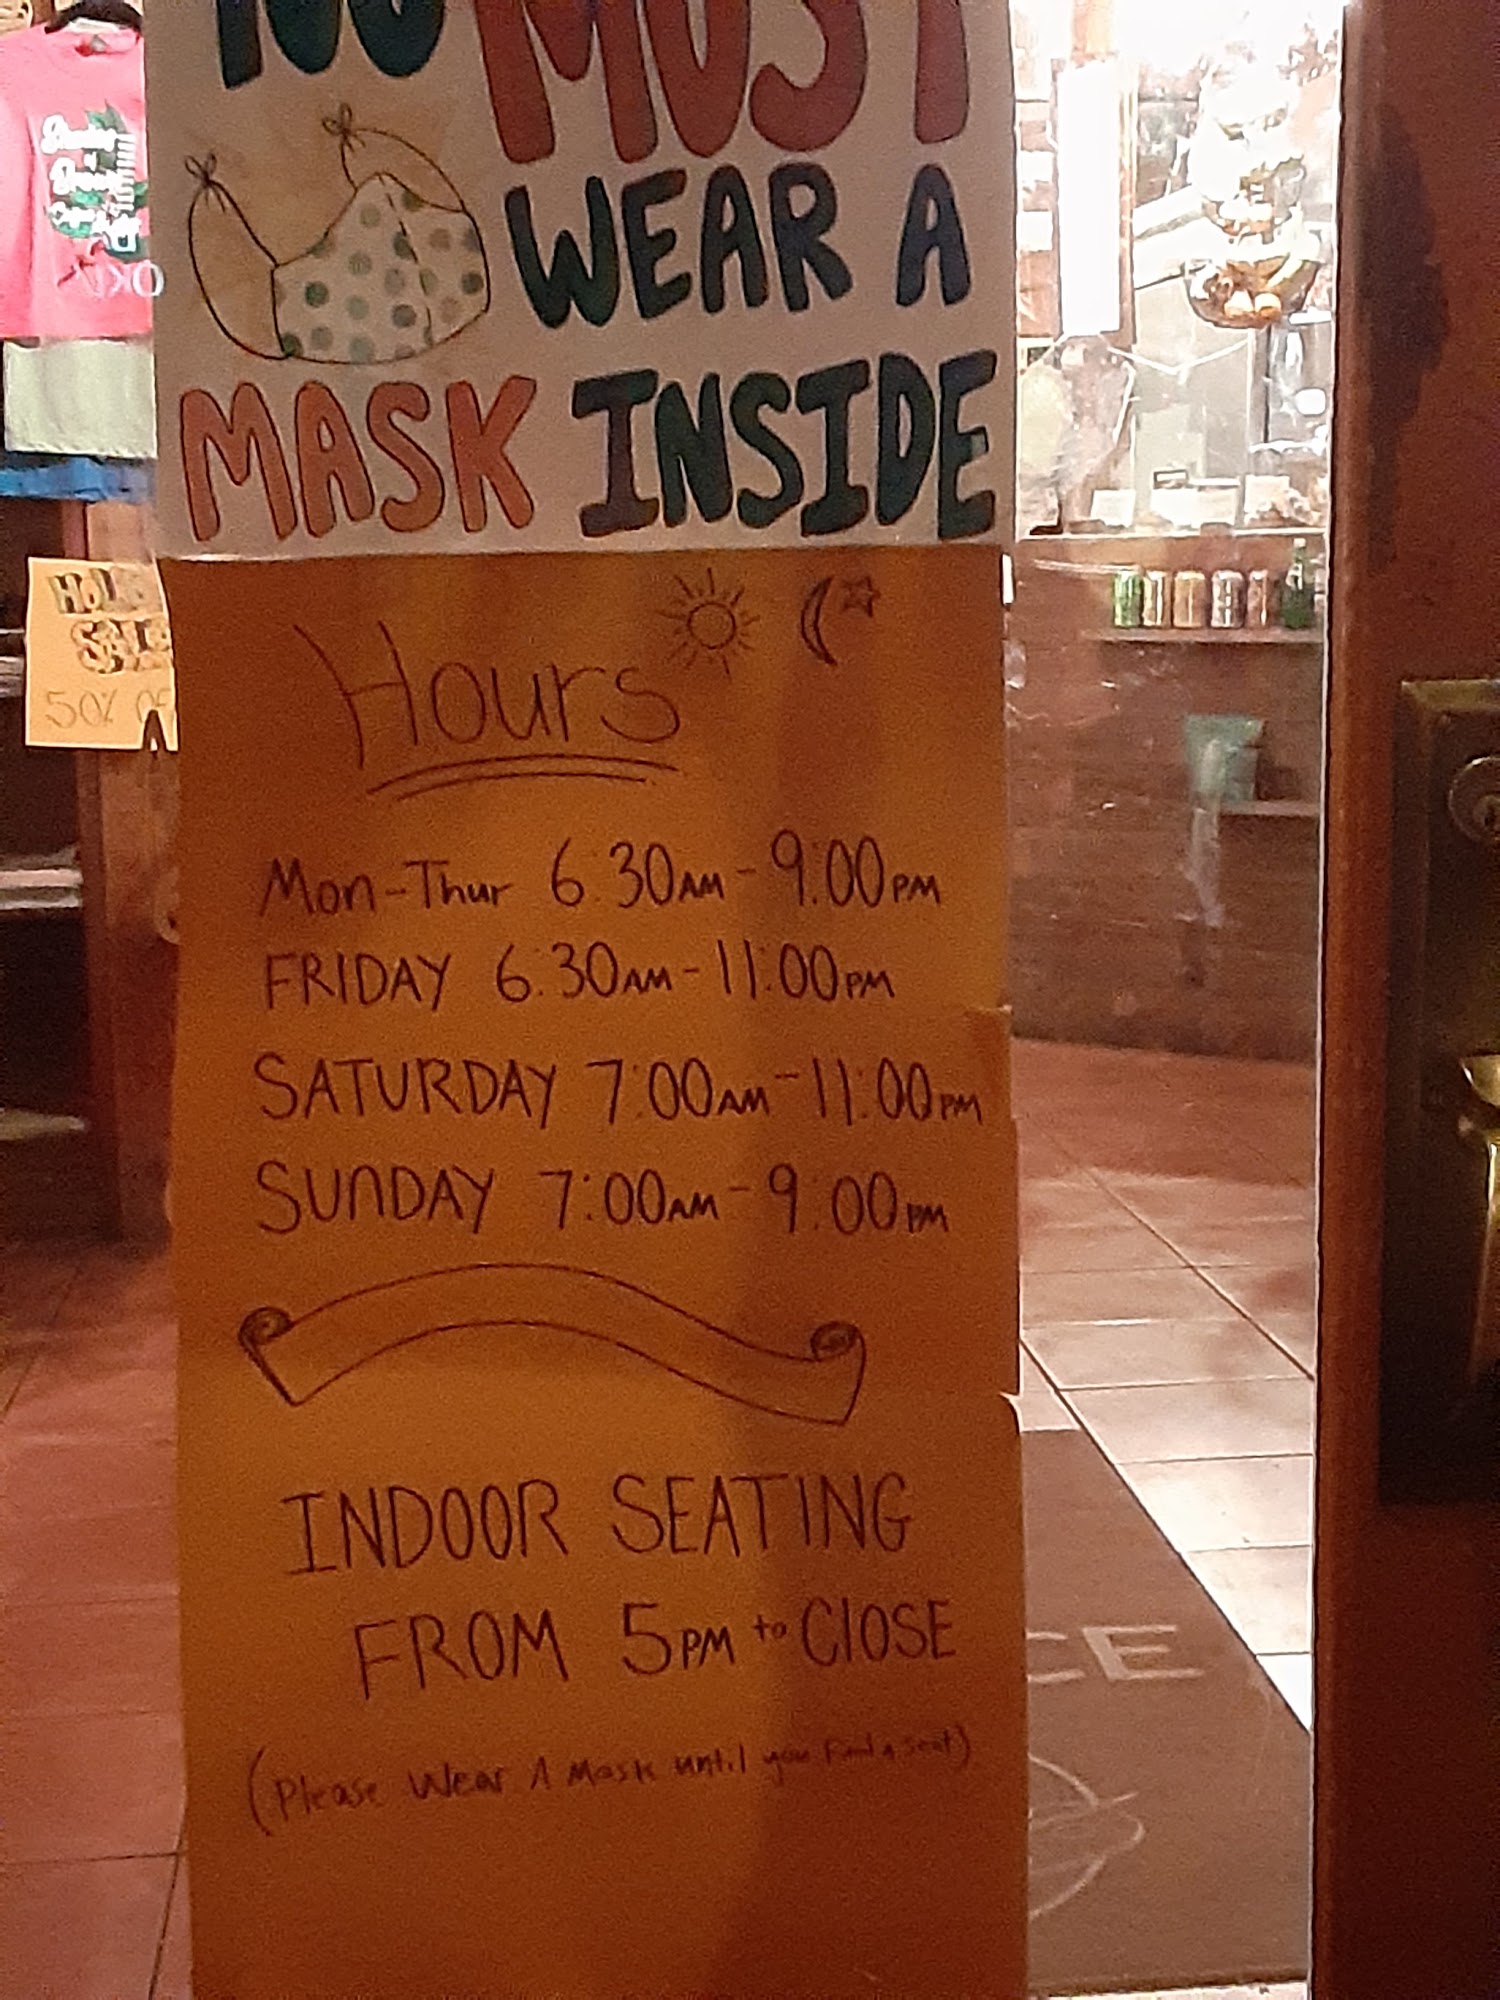 YOU MUST
WEAR A
MASK INSIDE
Hours
Mon-Thur 6:30AM-9:00PM
FRIDAY 6:30AM-11:00PM
SATURDAY 7:00AM-11:00PM
SUNDAY 7:00AM-9:00PM
INDOOR SEATING
FROM 5PM to CLOSE
(Please Wear A Mask until you Find a seat)
SALE
50%